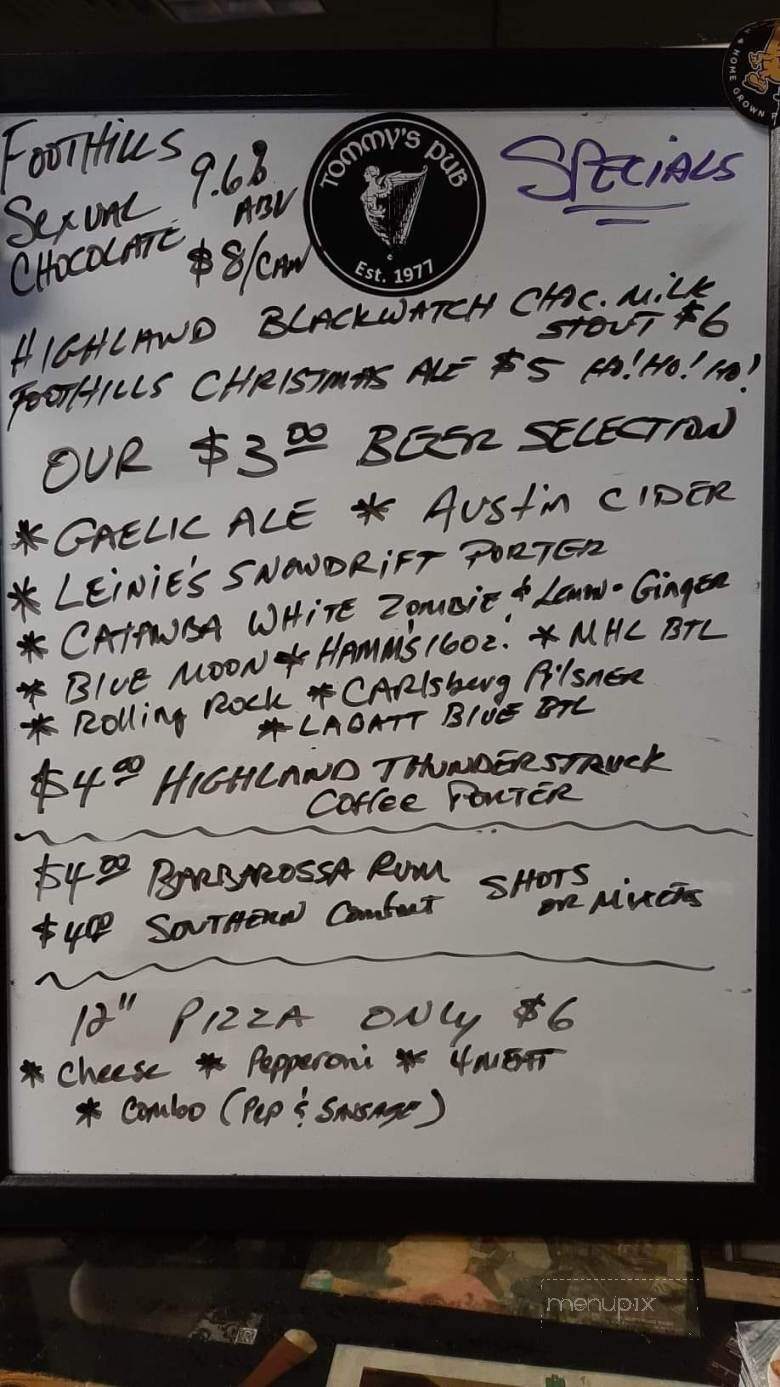 FOOTHILLS
SEXUAL
CHOCOLATE
9.6%
ABV
$8/CAN
TOMMY'S PUB
Est. 1977
SPECIALS
HOME GROWN
HIGHLAND BLACKWATCH CHOC. MILK
STOUT $6
FOOTHILLS CHRISTMAS ALE $5 HO! HO! HO!
OUR $3.00 BEER SELECTION
* GAELIC ALE * AUSTIN CIDER
* LEINIE'S SNOWDRIFT PORTER
* CATAWBA WHITE ZOMBIE & LEMON-GINGER
* BLUE MOON * HAMM'S 16OZ. * MHL BTL
* Rolling Rock * CARlsberg PilsNER
* LABATT BLUE BTL
$4.00 HIGHLAND THUNDERSTRUCK
COFFEE PORTER
$4.00 BARBAROSSA RUM
$4.00 SOUTHERN Comfort
SHOTS
OR MIXERS
12" PIZZA ONLY $6
* Cheese * Pepperoni * 4 MEAT
* Combo (PEP & SAUSAGE)
menupix